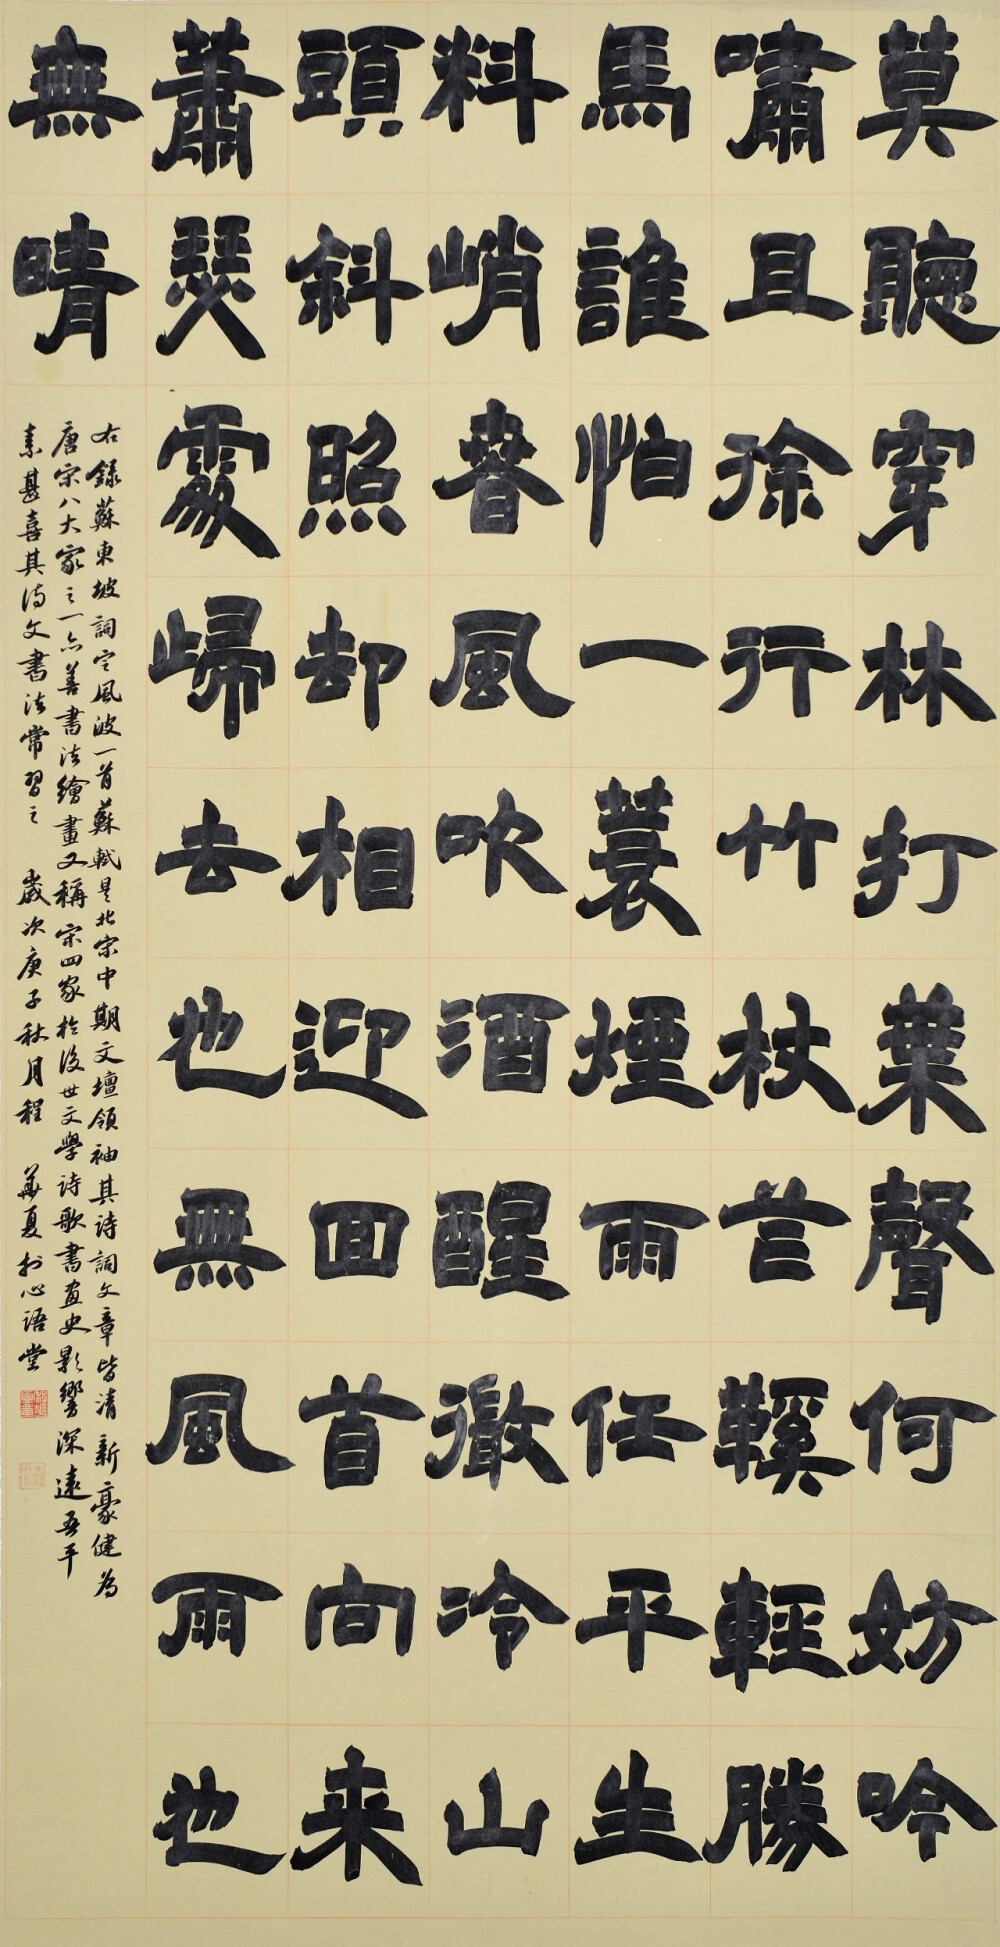 莫聽穿林打葉聲何妨吟
嘯且徐行竹杖芒鞵輕勝
馬誰怕一蓑煙雨任平生
料峭春風吹酒醒微冷山
頭斜照却相迎回首向来
蕭瑟處歸去也無風雨也
無晴
右錄蘇東坡詞定風波一首蘇軾是北宋中期文壇領袖其詩詞文章皆清新豪健為
唐宋八大家之一亦善書法繪畫又稱宋四家於後世文學詩歌書画史影響深遠吾平
素甚喜其詩文書法常習之 歲次庚子秋月程華夏於心語堂